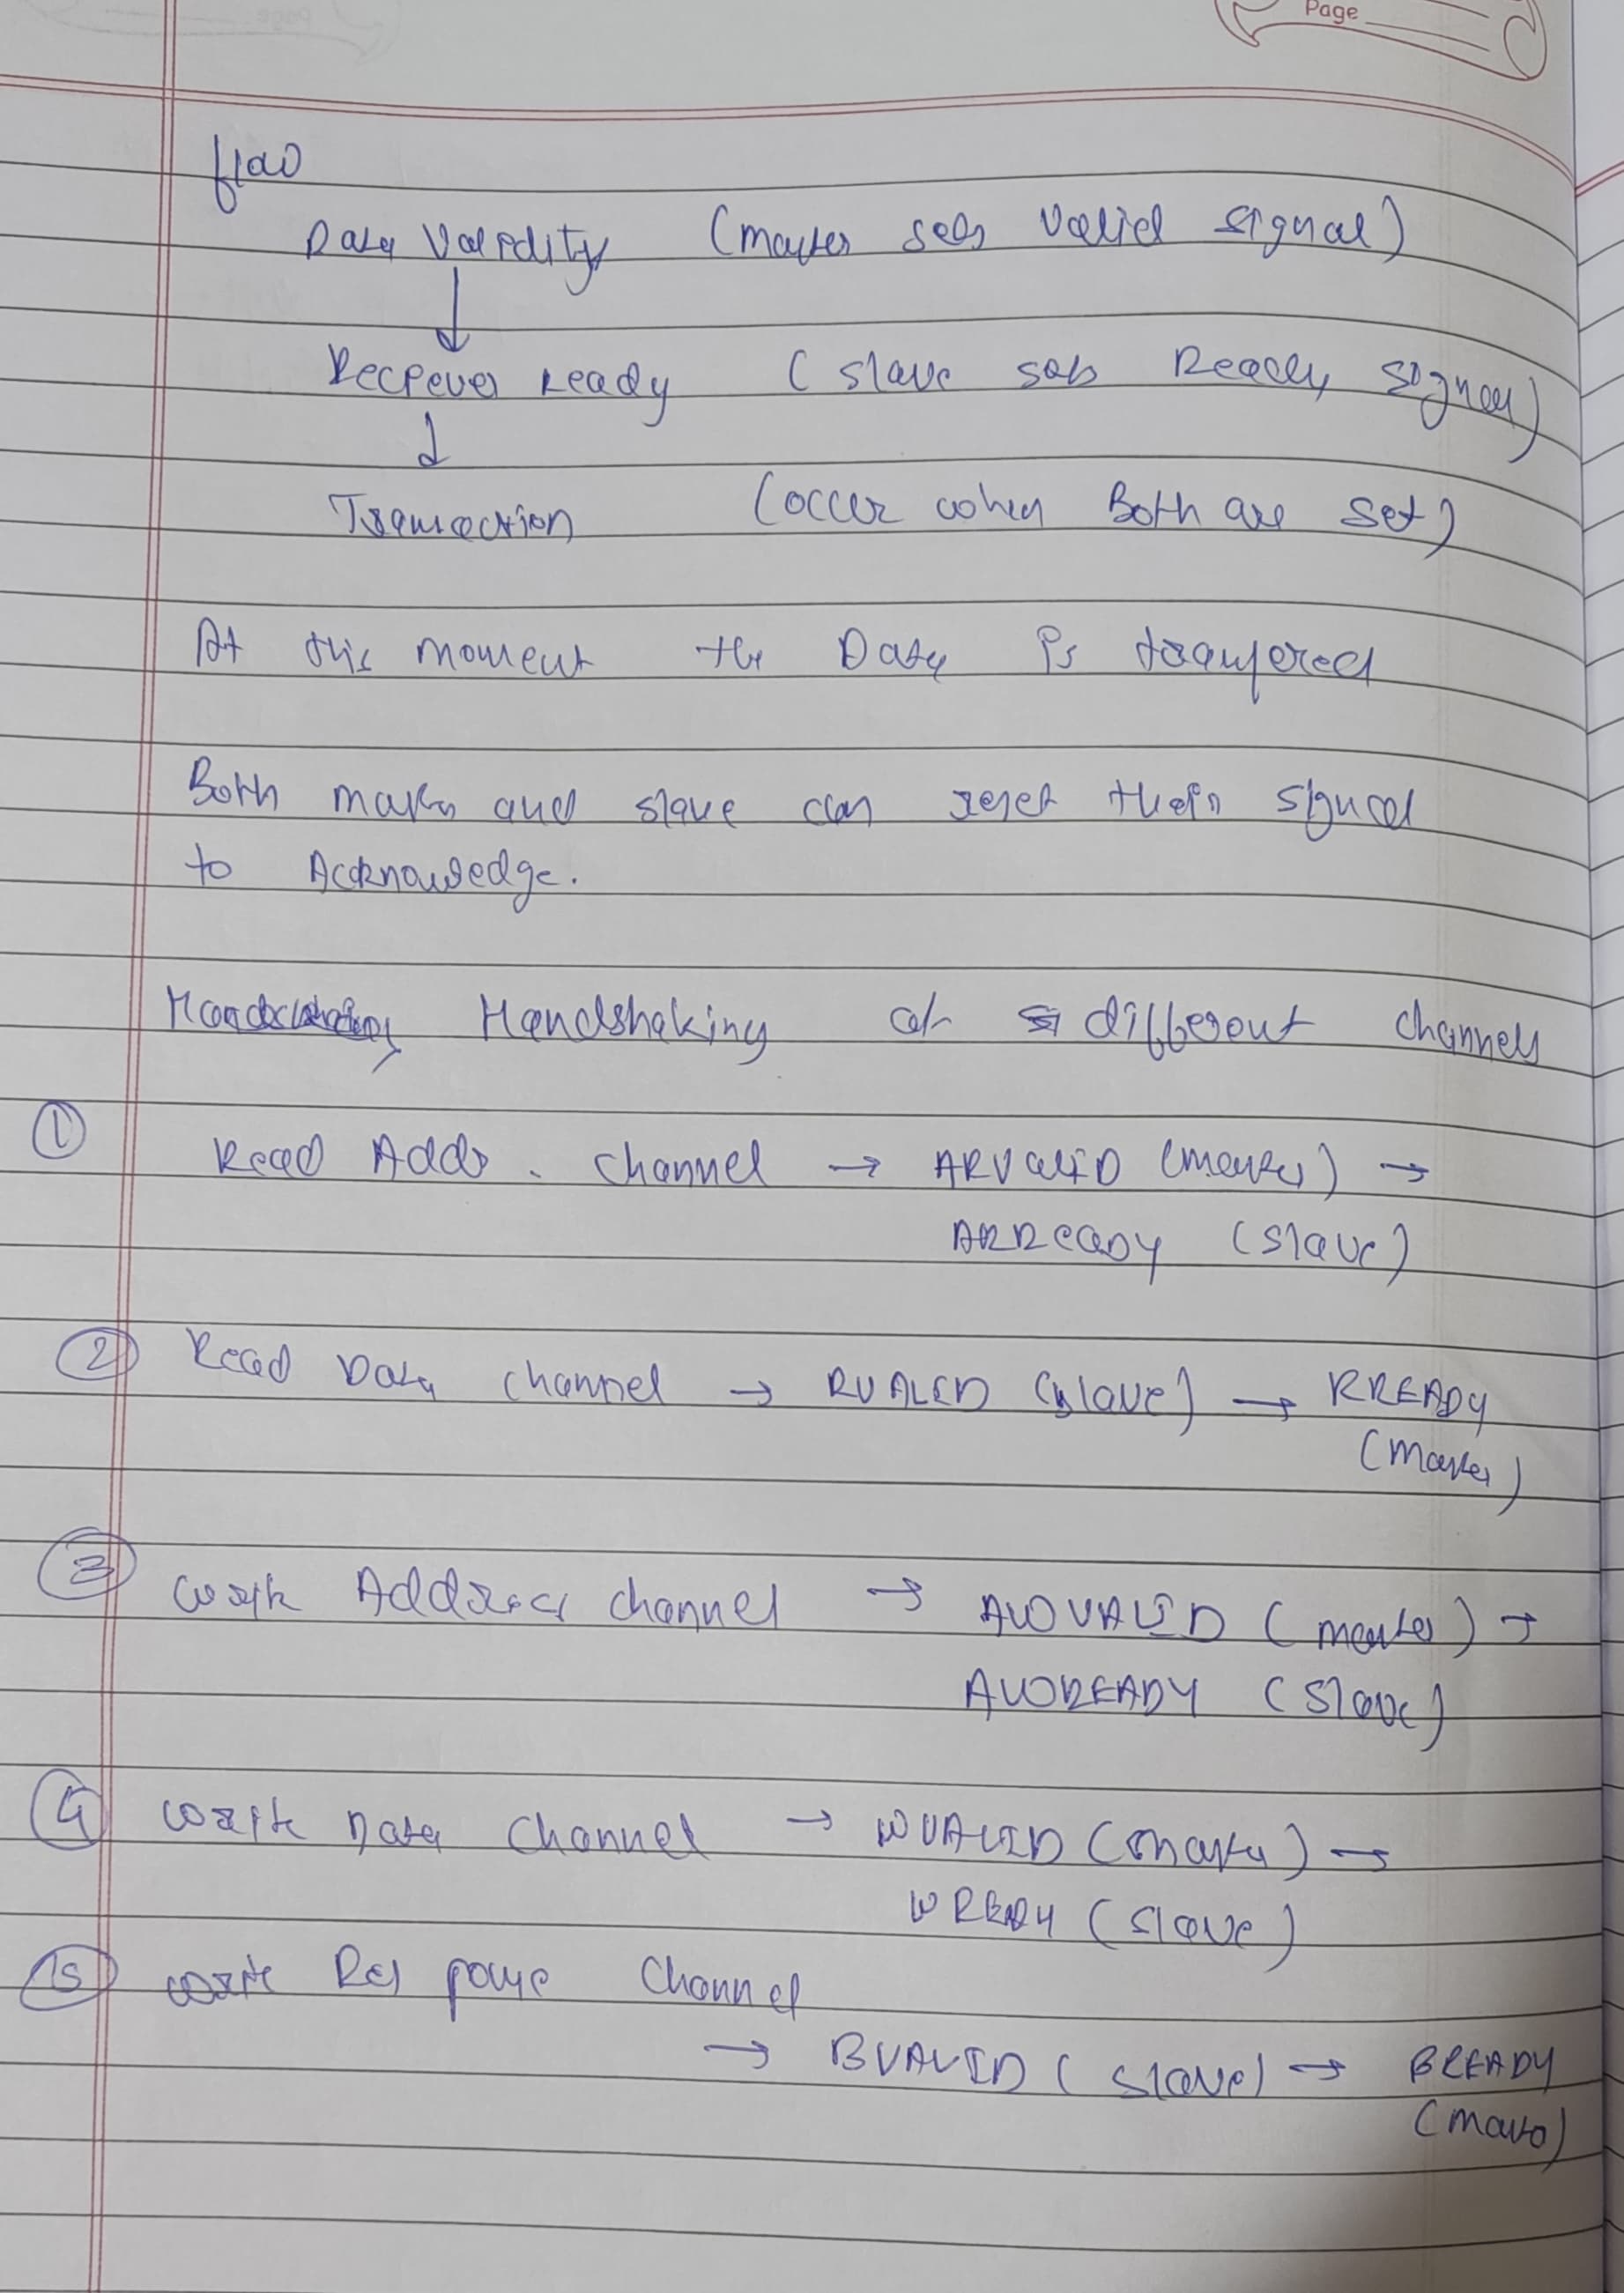 Page
flow
Data Validity (master sets valid signal)
↓
Reciever Ready (slave sets Ready signal)
↓
Transaction (occur when Both are set)
At this moment the Data is transfered
Both master and slave can reset their signal
to Acknowledge.
Handshaking Handshaking at different channels
① Read Addr. channel → ARVALID (master) →
ARREADY (slave)
② Read Data channel → RVALID (slave) → RREADY
(master)
③ write Address channel → AWVALID (master) →
AWREADY (slave)
④ write Data channel → WVALID (master) →
WREADY (slave)
⑤ write Response channel
→ BVALID (slave) → BREADY
(master)